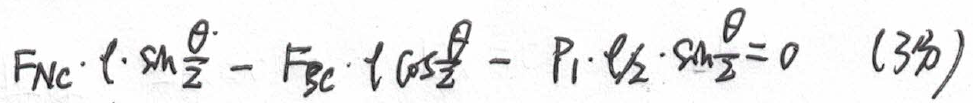 F_{NC}·l·sin\frac{θ}{2} − F_{BC}·l cos\frac{θ}{2} − P_1·l/2·sin\frac{θ}{2} = 0 (3分)